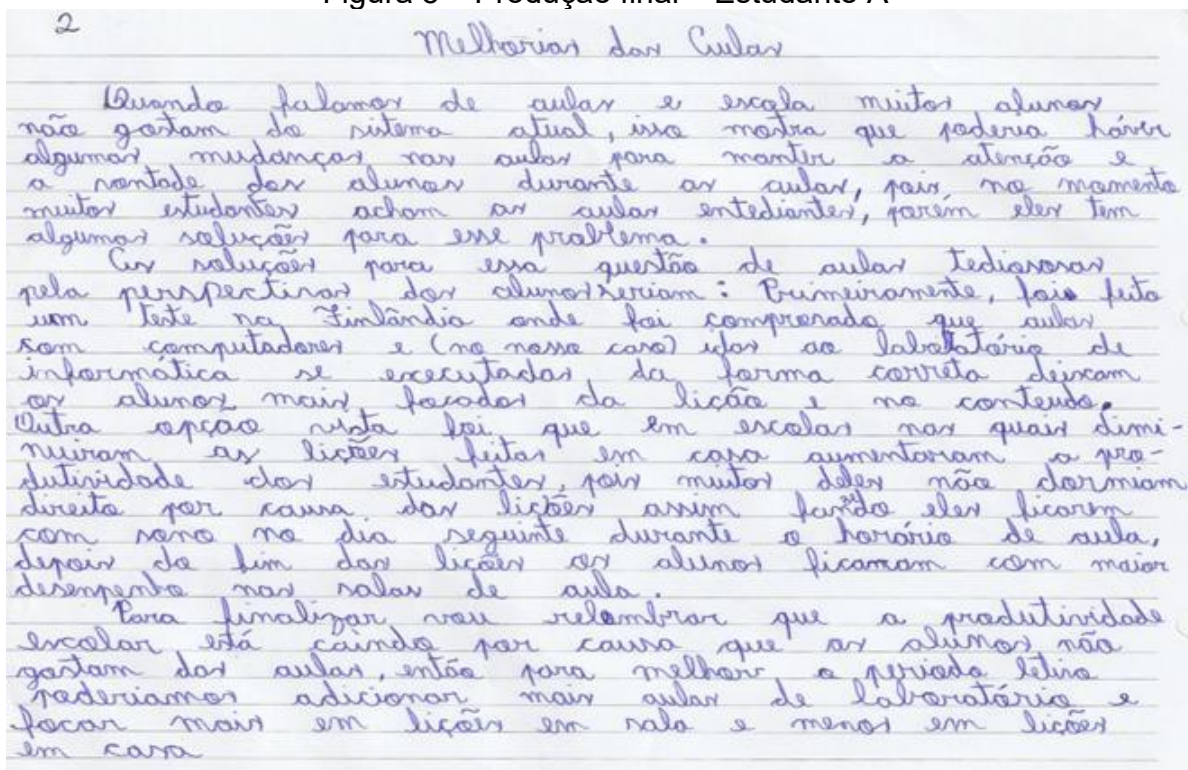 Figura 3 – Produção final – Estudante A
2
Melhorias das Aulas
Quando falamos de aulas e escola muitos alunos
não gostam do sitema atual, isso mostra que poderia háver
algumas mudanças nas aulas para manter a atenção e
a vontade dos alunos durante as aulas, pois, no momento
muitos estudantes acham as aulas entediantes, porém eles tem
algumas soluções para esse problema.
As soluções para essa questão de aulas tediososas
pela perspectivas dos alunos seriam: Primeiramente, fois feito
uom teste na Finlândia onde foi comprovado que aulas
com computadores e (no nosso caso) idas ao labolatório de
informática se executadas da forma correta deixam
os alunos mais focados da lição e no conteudo.
Outra opção vista foi que em escolas nas quais dimi-
nuiram as lições feitas em casa aumentaram a pro-
dutividade dos estudantes, pois muitos deles não dormiam
direito por causa das lições assim fazendo eles ficarem
com sono no dia seguinte durante o horário de aula,
depois do fim das lições os alunos ficamam com maior
desempenho nas salas de aula.
Para finalizar vou relembrar que a produtividade
escolar está caindo por causa que os alunos não
gostam das aulas, então para melhorr o periodo letivo
poderiamos adicionar mais aulas de laboratório e
focar mais em lições em sala e menos em lições
em casa